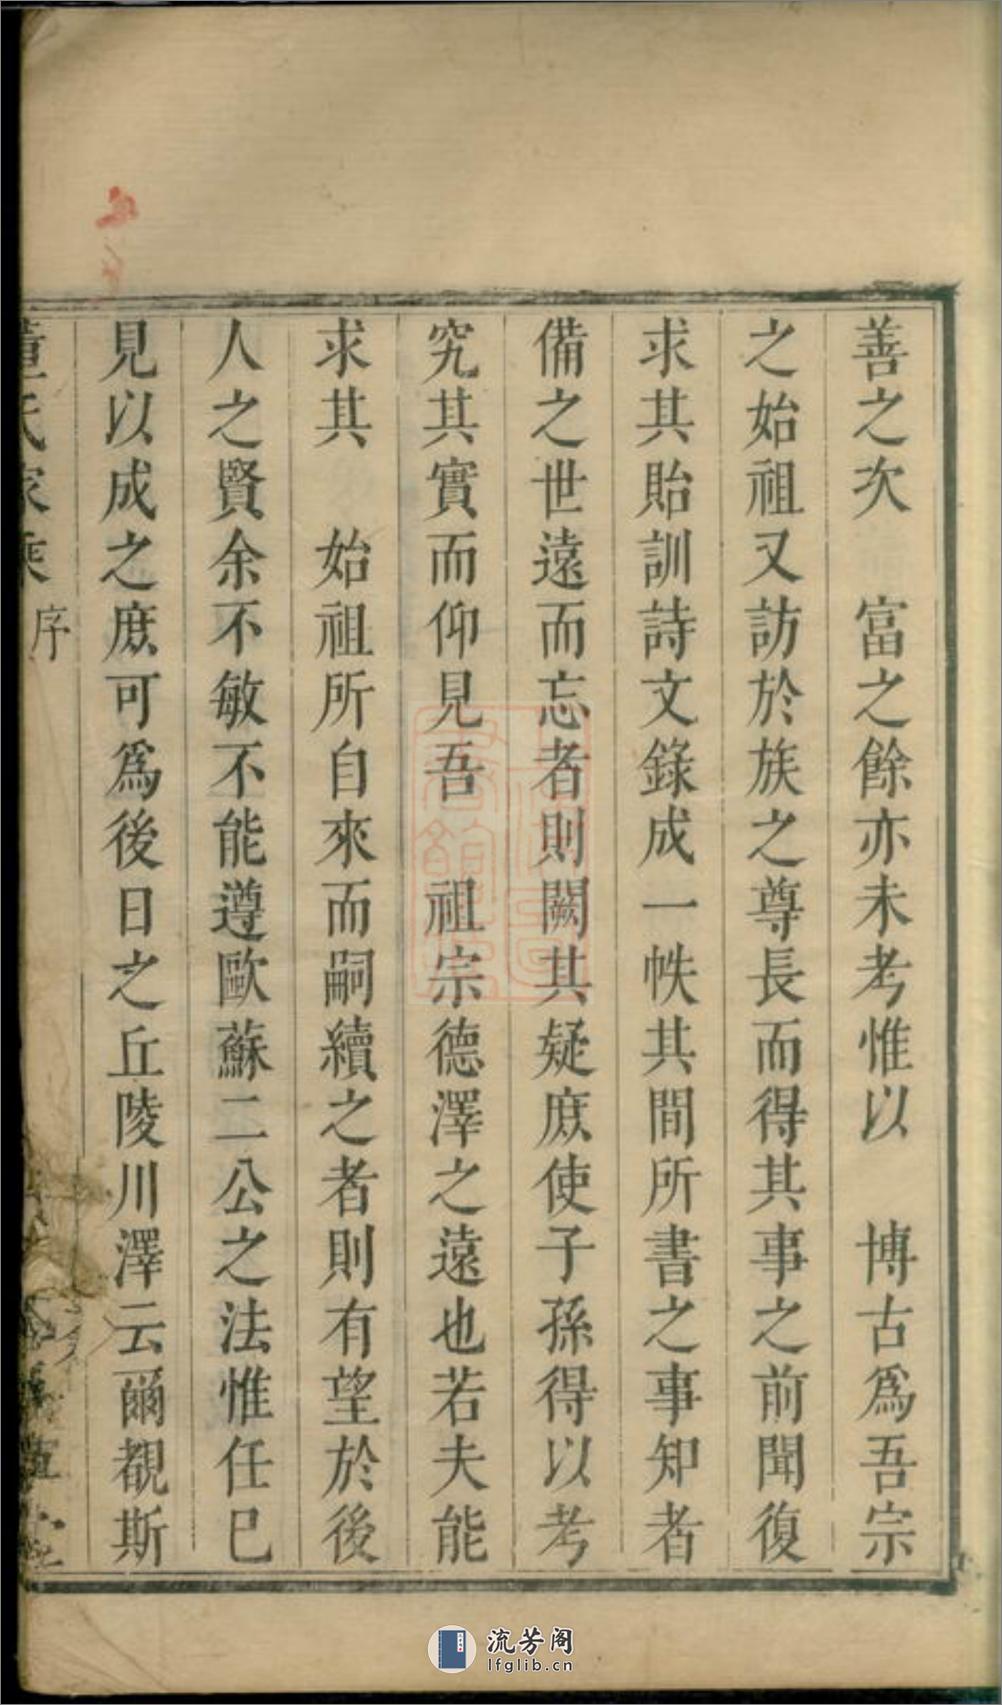 善之次　富之餘亦未考惟以　博古爲吾宗
之始祖又訪於族之尊長而得其事之前聞復
求其貽訓詩文錄成一帙其間所書之事知者
備之世遠而忘者則闕其疑庶使子孫得以考
究其實而仰見吾　祖宗德澤之遠也若夫能
求其　始祖所自來而嗣續之者則有望於後
人之賢余不敏不能遵歐蘇二公之法惟任已
見以成之庶可爲後日之丘陵川澤云爾覩斯
董氏家乘 序
流芳阁
lfglib.cn